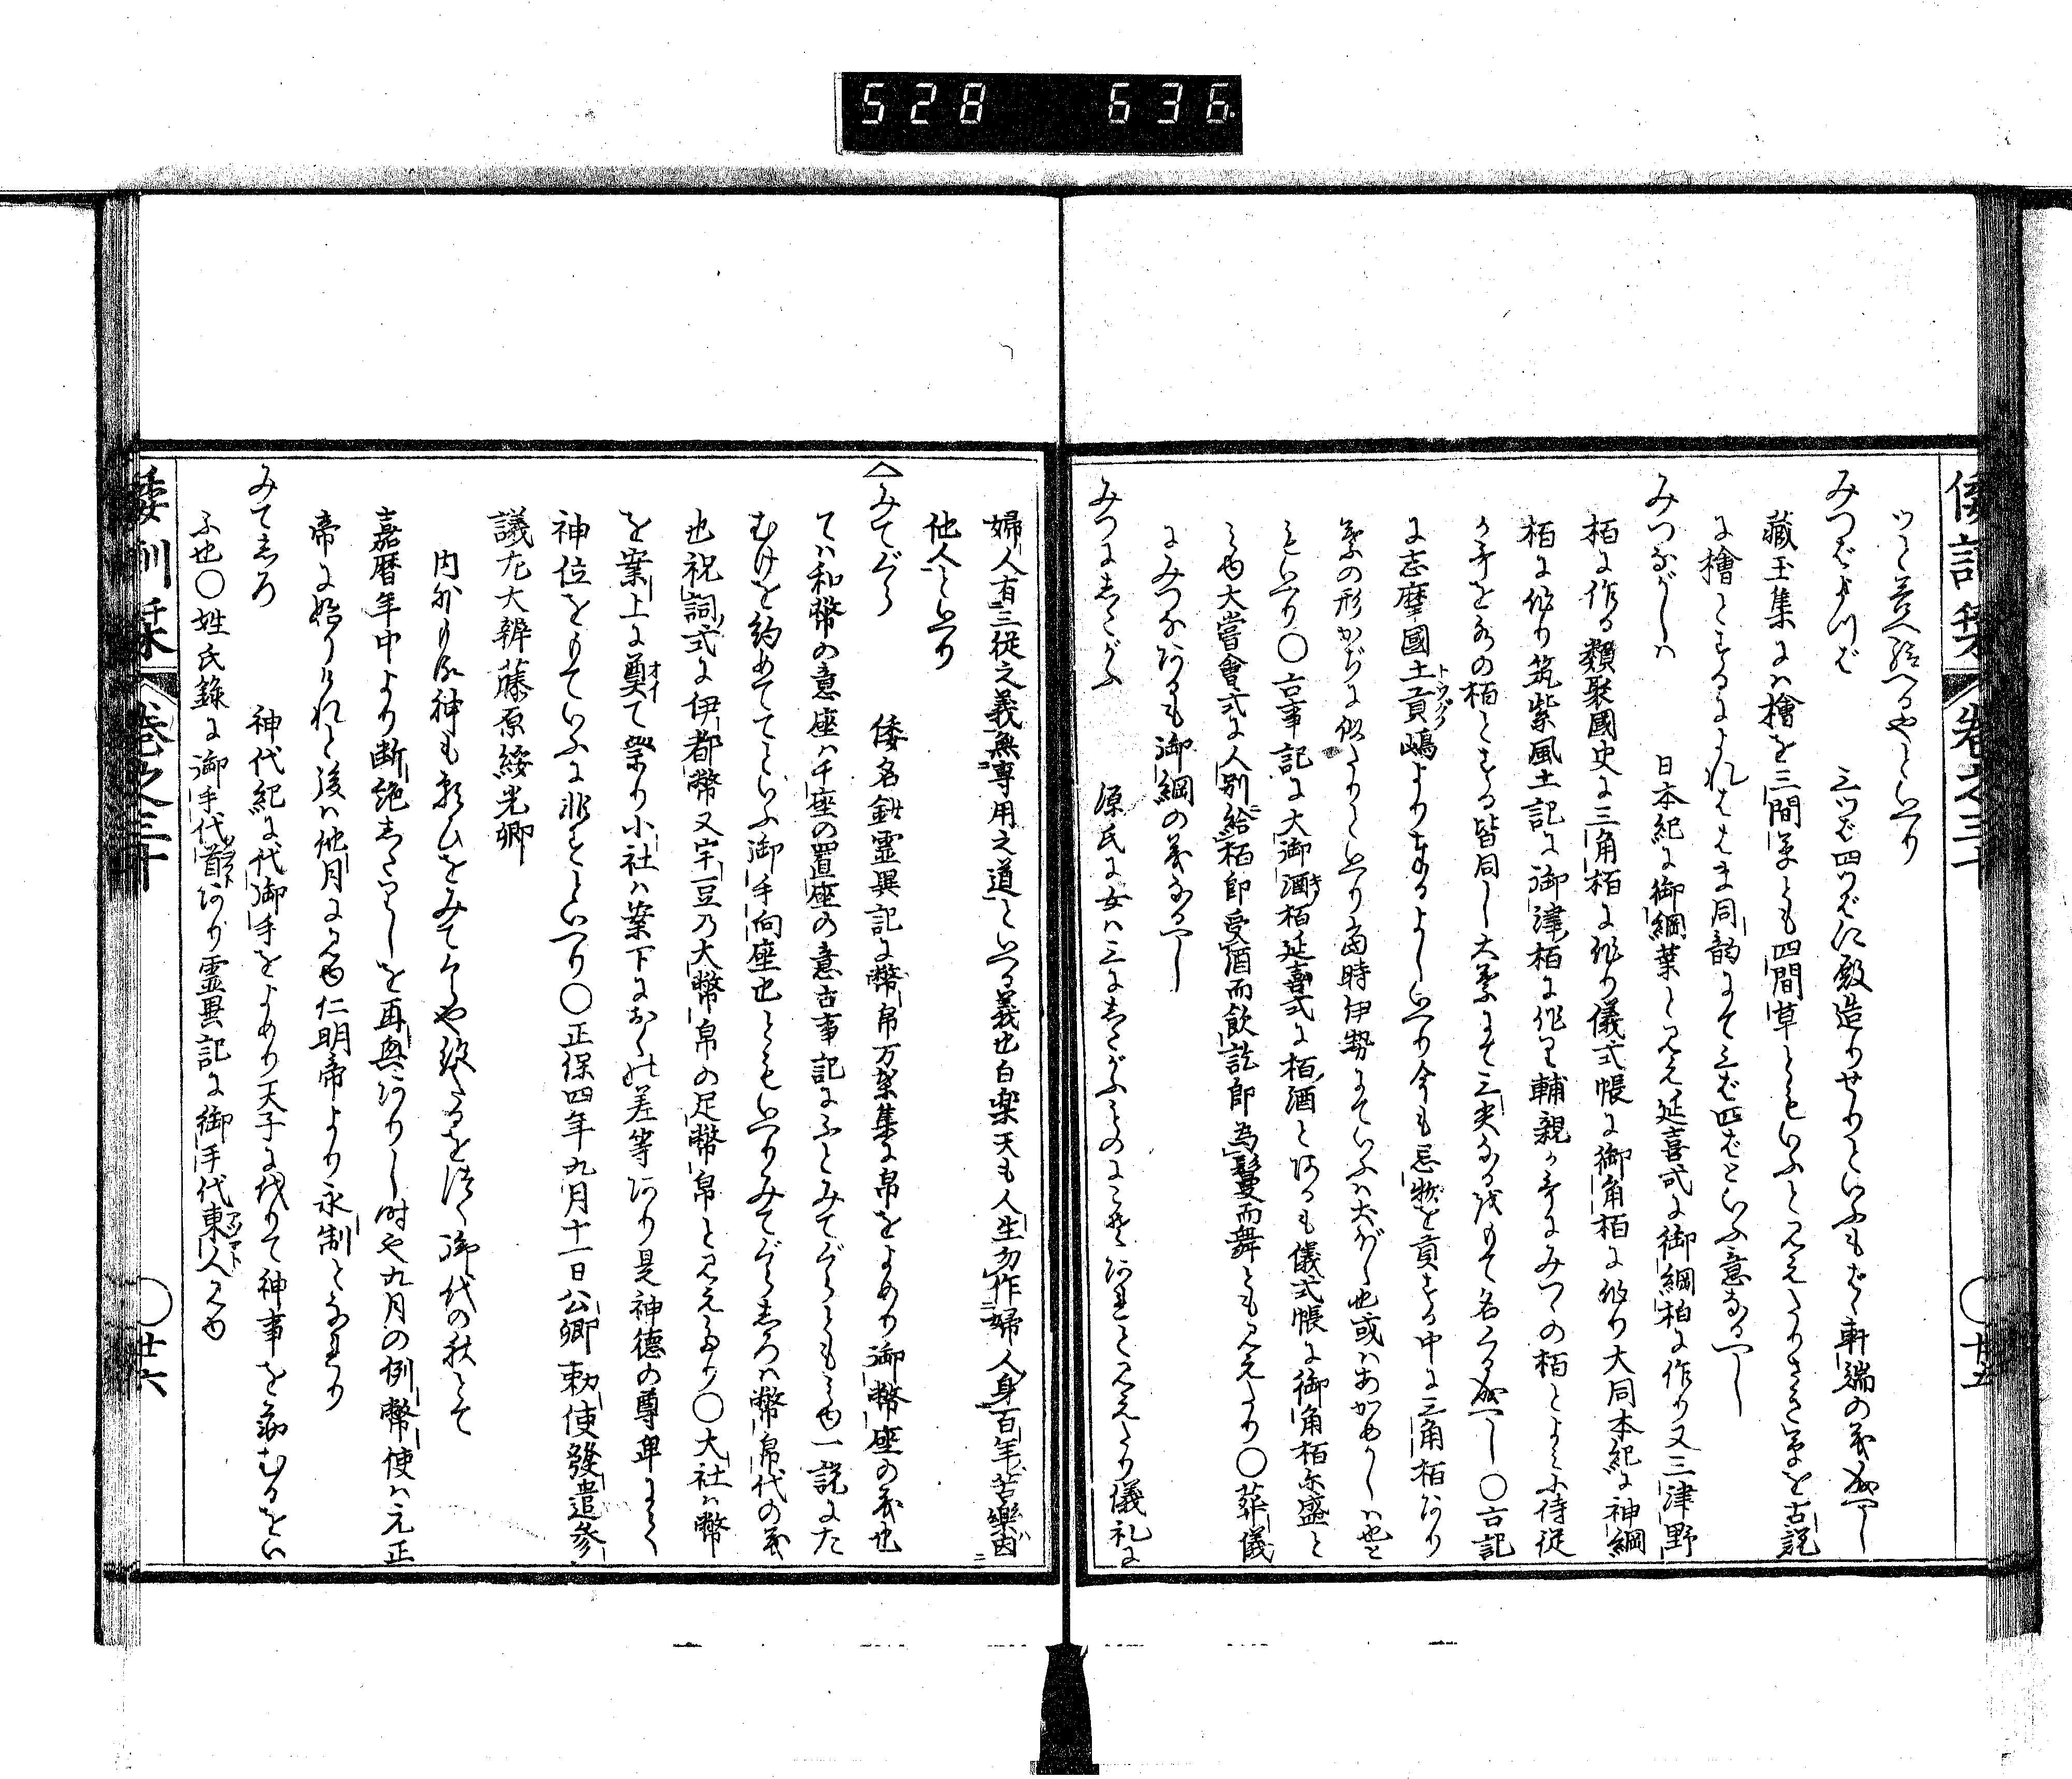 528 636
倭訓栞 卷之三十 ○廿五
つと答へ給へるやといへり
みつばよつば 三つば四つばに殿造りせりといふもば軒端の義成べし
藏玉集には檜を三間草とも四間草ともいふと見えたりさき草を古説
に檜とするによればはま同韵にて三ば四ばといふ意なるべし
みつながしは 日本紀に御綱葉と見え延喜式に御綱柏に作り又三津野
柏に作る類聚國史に三角柏に作り儀式帳に御角柏に作り大同本紀に神綱
柏に作り筑紫風土記に御津柏に作れり輔親か哥にみつのの柏とよみ小侍従
か哥を
の柏とする皆同し大葉にて三尖なる
をもて名くる成べし○古記
に志摩國土貢嶋よりまゐるよしいへり今も忌物を貢する中に三角柏あり
葉の形かぢに似たりといへり當時伊勢にていふは大がし也或はあかめかしは也と
もいへり○古事記に大御酒柏延喜式に柏酒とあるも儀式帳に御角柏尓盛と
見ゆ大嘗會式に人別給柏即受酒而飲訖即為鬘而舞とも見えたり○葬儀
にみつなあるも御綱の義なるべし
みつにしたがふ 源氏に女は三にしたがふものにこそあれと見えたり儀礼に
婦人有三從之義無專用之道といへる義也白楽天も人生勿作婦人身百年苦樂因
他人といへり
みてぐら 倭名鈔霊異記に幣帛万葉集に帛をよめり御幣座の義也
ては和幣の意座は千座の置座の意古事記にふとみてぐらとも見ゆ一説にた
むけを約めててといふ御手向座也ともいへりみてぐらしろは幣帛代の義
也祝詞式に伊都幣又宇豆乃大幣帛の足幣帛と見えたり○大社は幣
を案上に奠て祭り小社は案下におく此差等あり是神德の尊卑にて
神位をもていふに非ずといへり○正保四年九月十一日公卿勅使發遣參
議左大辨藤原綏光卿
内外の神も
ひをみてくらや絶たるをつく御代の秋とて
嘉暦年中より断絶したりしを再興ありし時也九月の例幣使は元正
帝に始りけれと後は他月に見ゆ仁明帝より永制となれり
みてしろ 神代紀に代御手をよめり天子に代りて神事を勤むるをい
ふ也○姓氏錄に御手代首あり霊異記に御手代東人見ゆ
倭訓栞 卷之三十 ○廿六